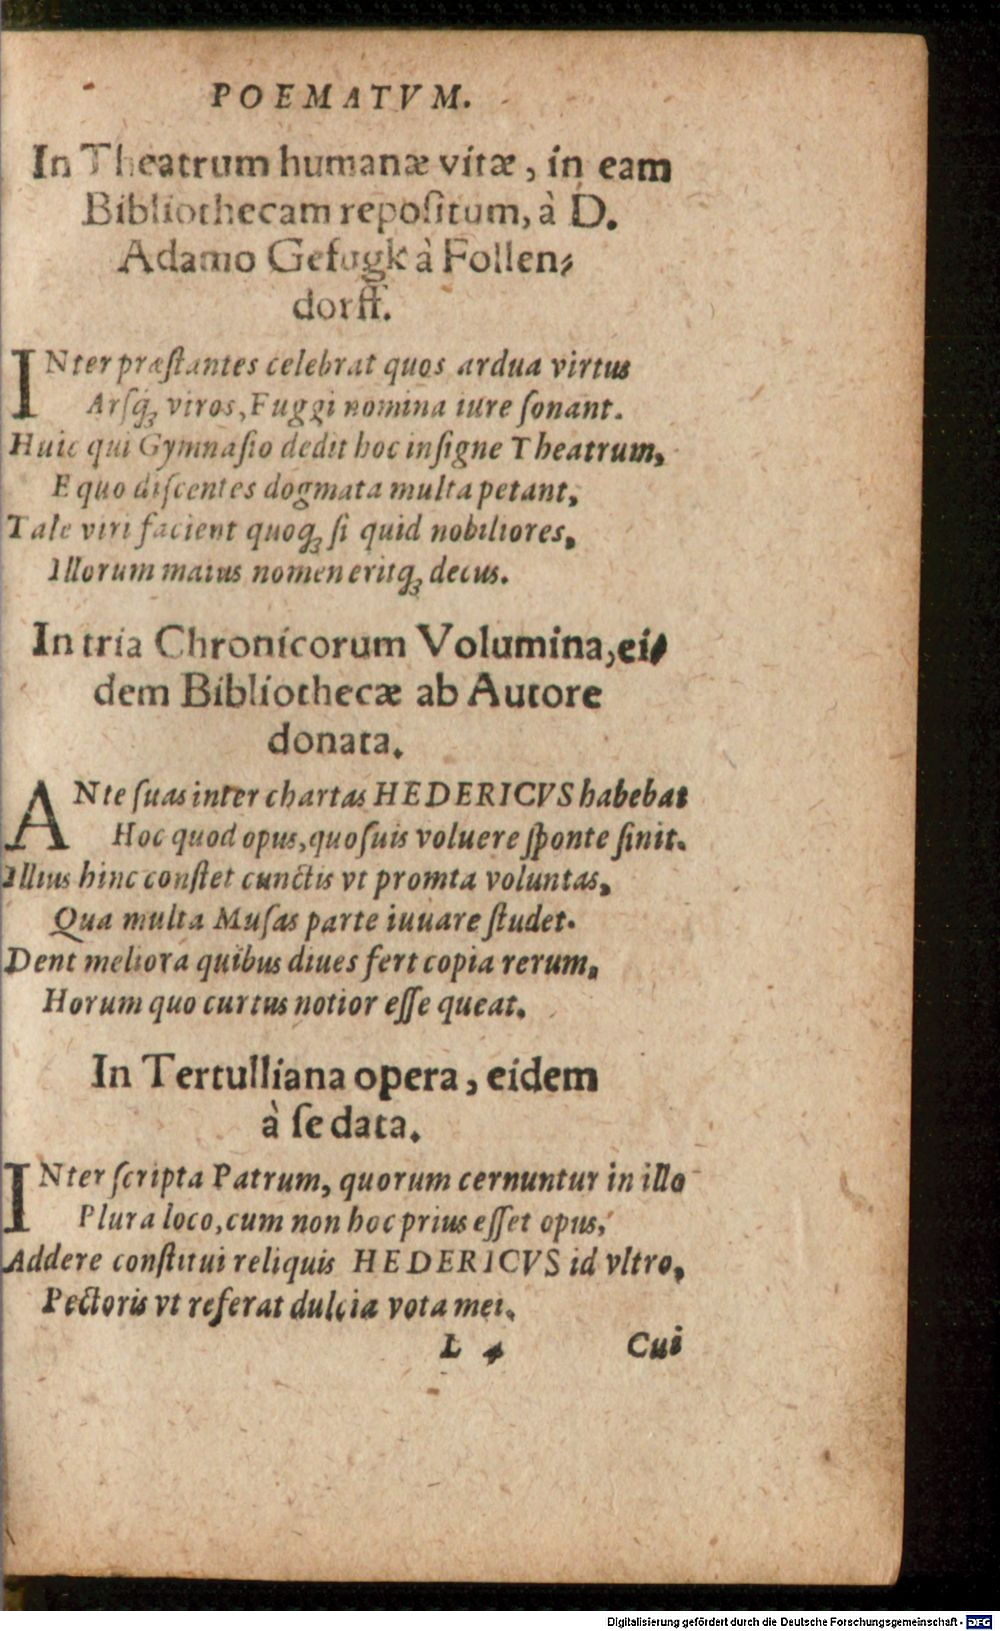 POEMATVM.
In Theatrum humanæ vitæ, in eam
Bibliothecam repoſitum, à D.
Adamo Gefugk à Follen⸗
dorff.
INter præſtantes celebrat quos ardua virtus
Arſqꝫ viros, Fuggi nomina iure ſonant.
Huic qui Gymnaſio dedit hoc inſigne Theatrum,
E quo diſcentes dogmata multa petant,
Tale viri facient quoqꝫ ſi quid nobiliores,
Illorum maius nomen eritqꝫ decus.
In tria Chronicorum Volumina, ei⸗
dem Bibliothecæ ab Autore
donata.
ANte ſuas inter chartas HEDERICVS habebat
Hoc quod opus, quo ſuis voluere ſponte ſinit.
Illius hinc conſtet cunctis vt promta voluntas,
Qua multa Muſas parte iuuare ſtudet.
Dent meliora quibus diues fert copia rerum,
Horum quo curtus notior eſſe queat.
In Tertulliana opera, eidem
à ſe data.
INter ſcripta Patrum, quorum cernuntur in illo
Plura loco, cum non hoc prius eſſet opus,
Addere conſtitui reliquis HEDERICVS id vltro,
Pectoris vt referat dulcia vota mei.
L 4 Cui
Digitalisierung gefördert durch die Deutsche Forschungsgemeinschaft - DFG